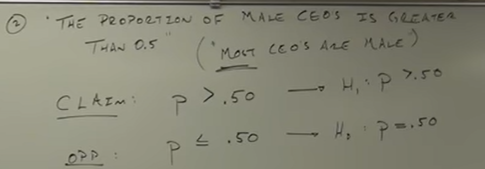 ② "THE PROPORTION OF MALE CEOS IS GREATER
THAN 0.5" ("MOST CEO'S ARE MALE")
CLAIM: p > .50 → H₁: p > .50
OPP: p ≤ .50 → H₀: p = .50